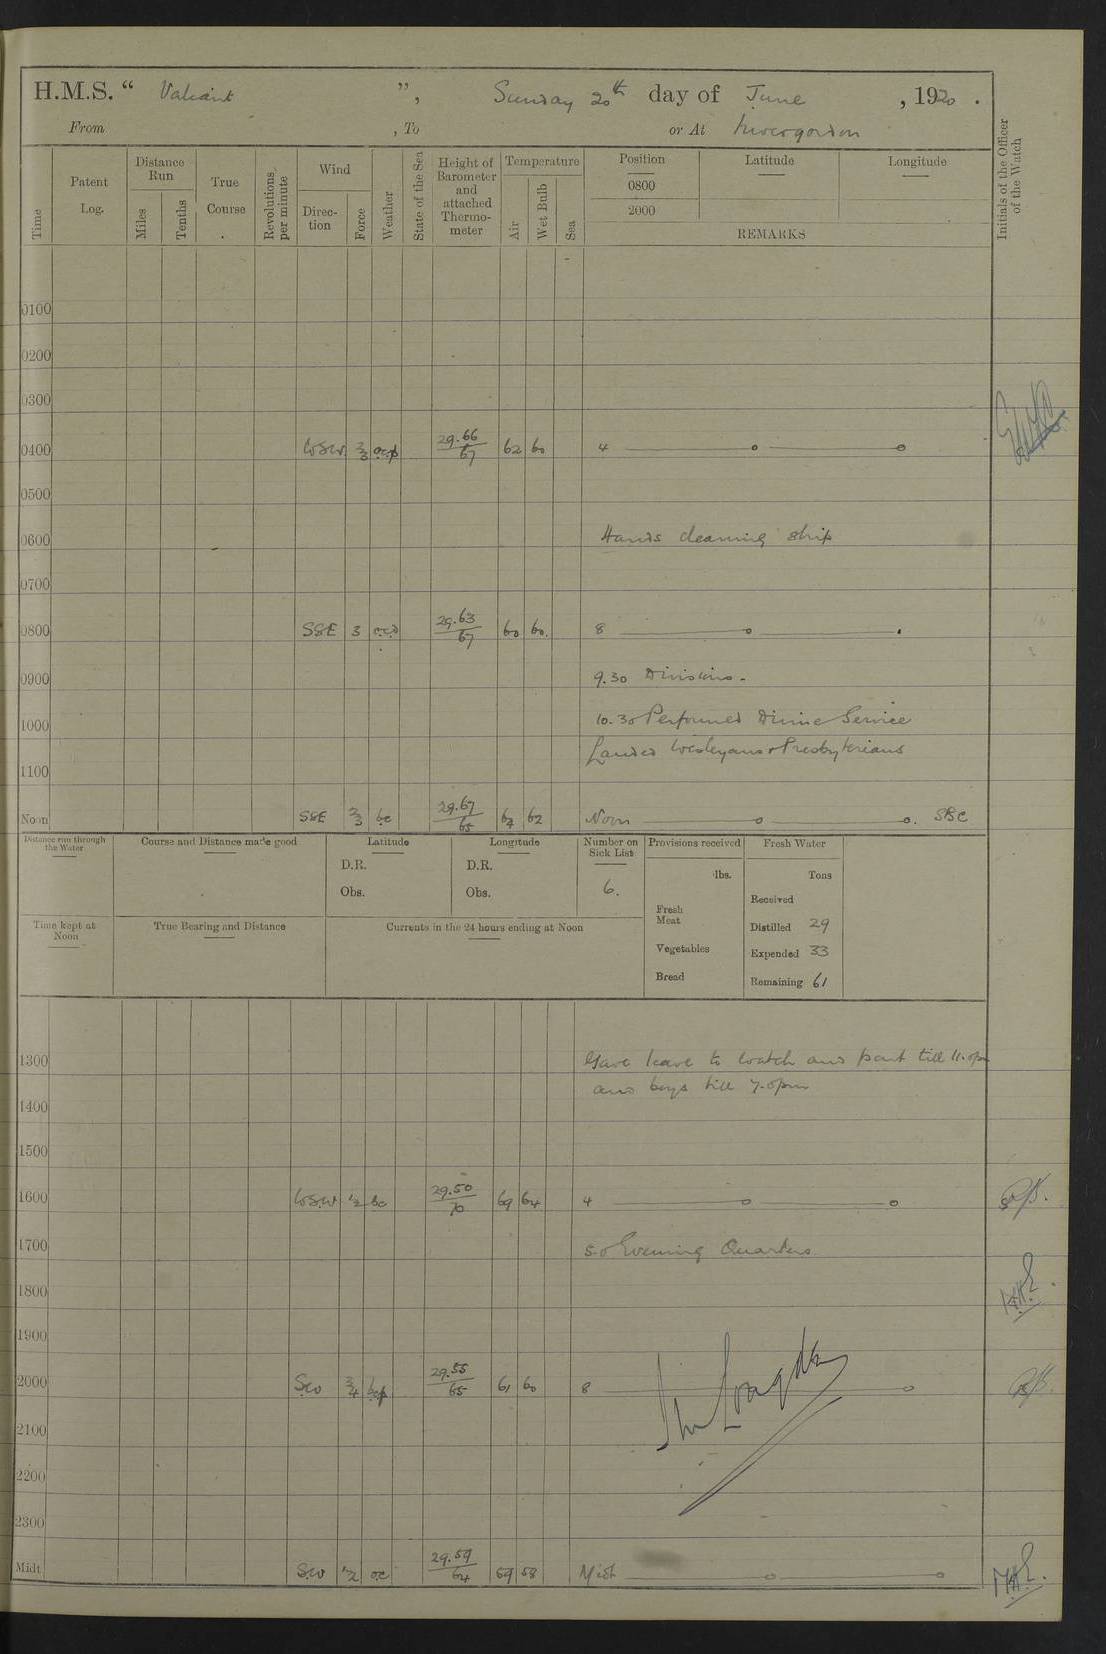 H.M.S. “ Valiant ”, Sunday 20th day of June , 1920 .
From , To or At Invergordon
Time
Patent Log.
Distance Run
Miles
Tenths
True Course
Revolutions per minute
Wind
Direc-tion
Force
Weather
State of the Sea
Height of Barometer and attached Thermo-meter
Temperature
Air
Wet Bulb
Sea
Position Latitude Longitude
0800
2000
REMARKS
Initials of the Officer of the Watch
0100
0200
0300
0400 WSW 2/3 ocp 29.66/67 62 60 4
0500
0600 Hands cleaning ship
0700
0800 SSE 3 29.63/67 60 60 8
0900 9.30 Divisions.
1000 10.30 Performed Divine Service
Landed Wesleyans & Presbyterians
1100
Noon SSE 2/3 bc 29.67/65 62 Noon SBC
Distance run through the Water
Course and Distance made good
Latitude
D.R.
Obs.
Longitude
D.R.
Obs.
Number on Sick List
6.
Provisions received
lbs.
Fresh Meat
Vegetables
Bread
Fresh Water
Tons
Received
Distilled 29
Expended 33
Remaining 61
Time kept at Noon
True Bearing and Distance
Currents in the 24 hours ending at Noon
1300 Gave leave to watch and part till 11.0pm
and boys till 7.0pm
1400
1500
1600 WSW 1/2 bc 29.50/70 69 64 4
1700 5.0 Evening Quarters
1800
1900
2000 SW 3/4 bcp 29.55/65 61 60 8
2100
2200
2300
Midt SW 1/2 oc 29.59/64 59 58 Midt